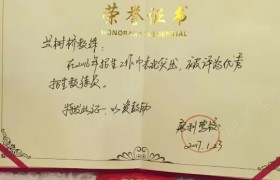 荣誉证书
HONORARY CREDENTIAL
兰树桥教练:
在2016年招生工作中表现突出 被评为优秀
招生教练员
特发此证 以资鼓励
2017.1.23